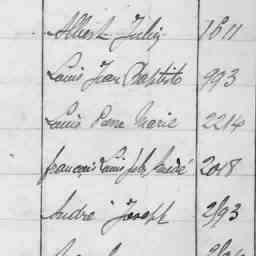 Albert Julien 1811
Louis Jean Baptiste 993
Louis Pierre Marie 2214
françois Louis 2018
André Joseph 2193